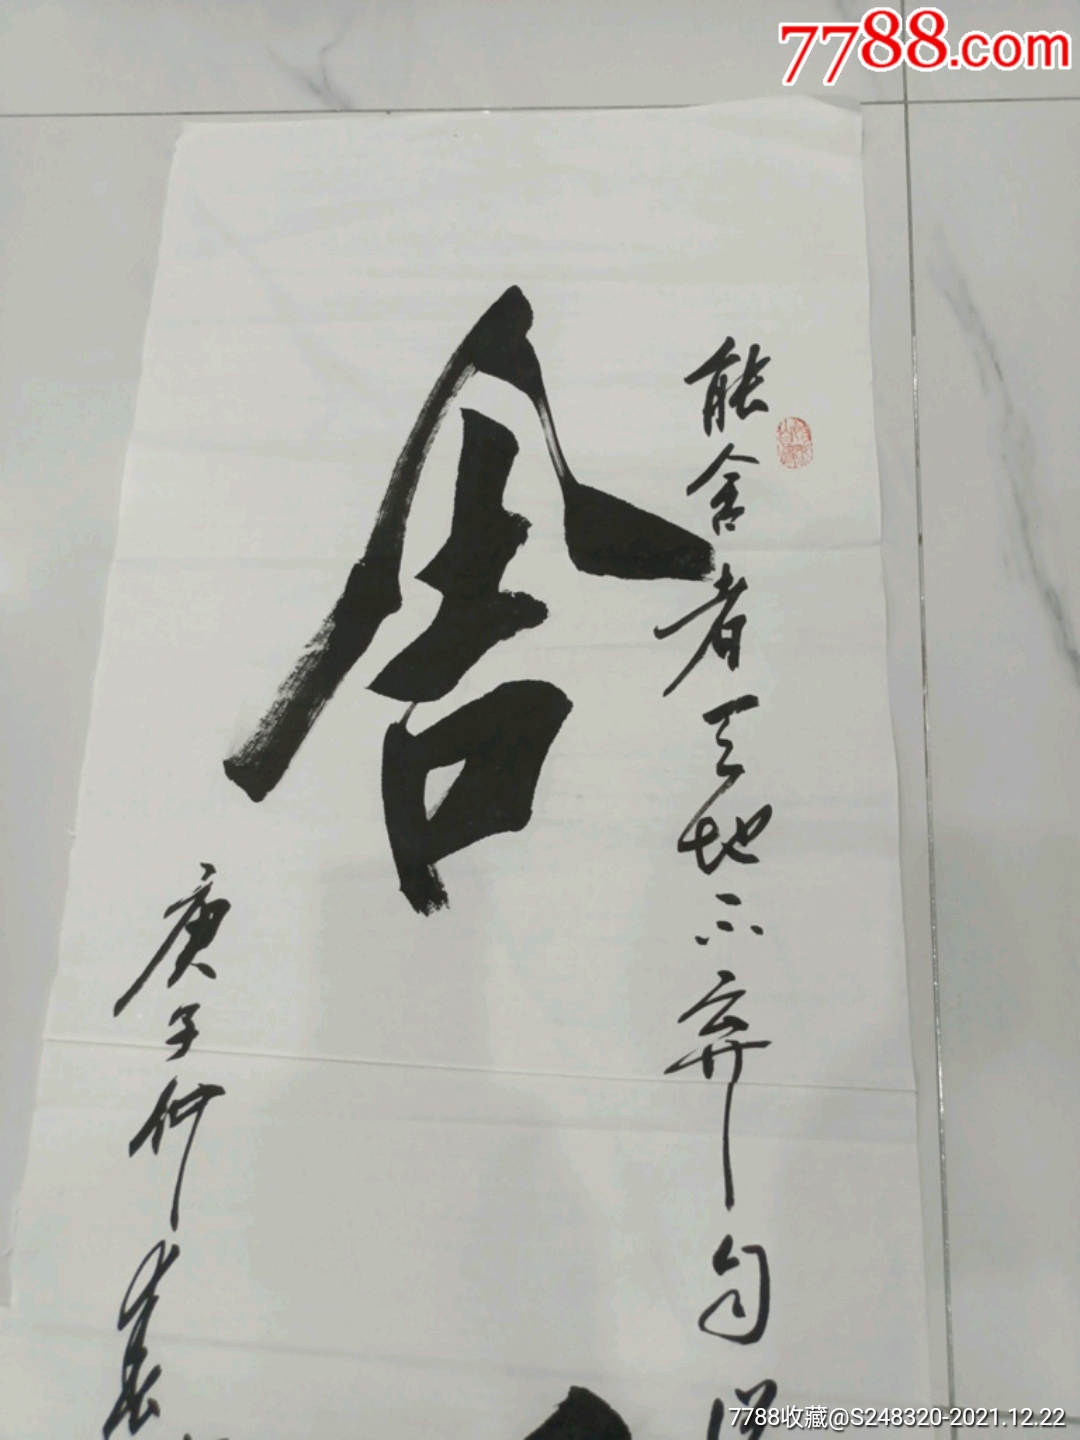 7788.com
能舍者天地不弃自
舍
庚子仲春
7788收藏@S248320-2021.12.22